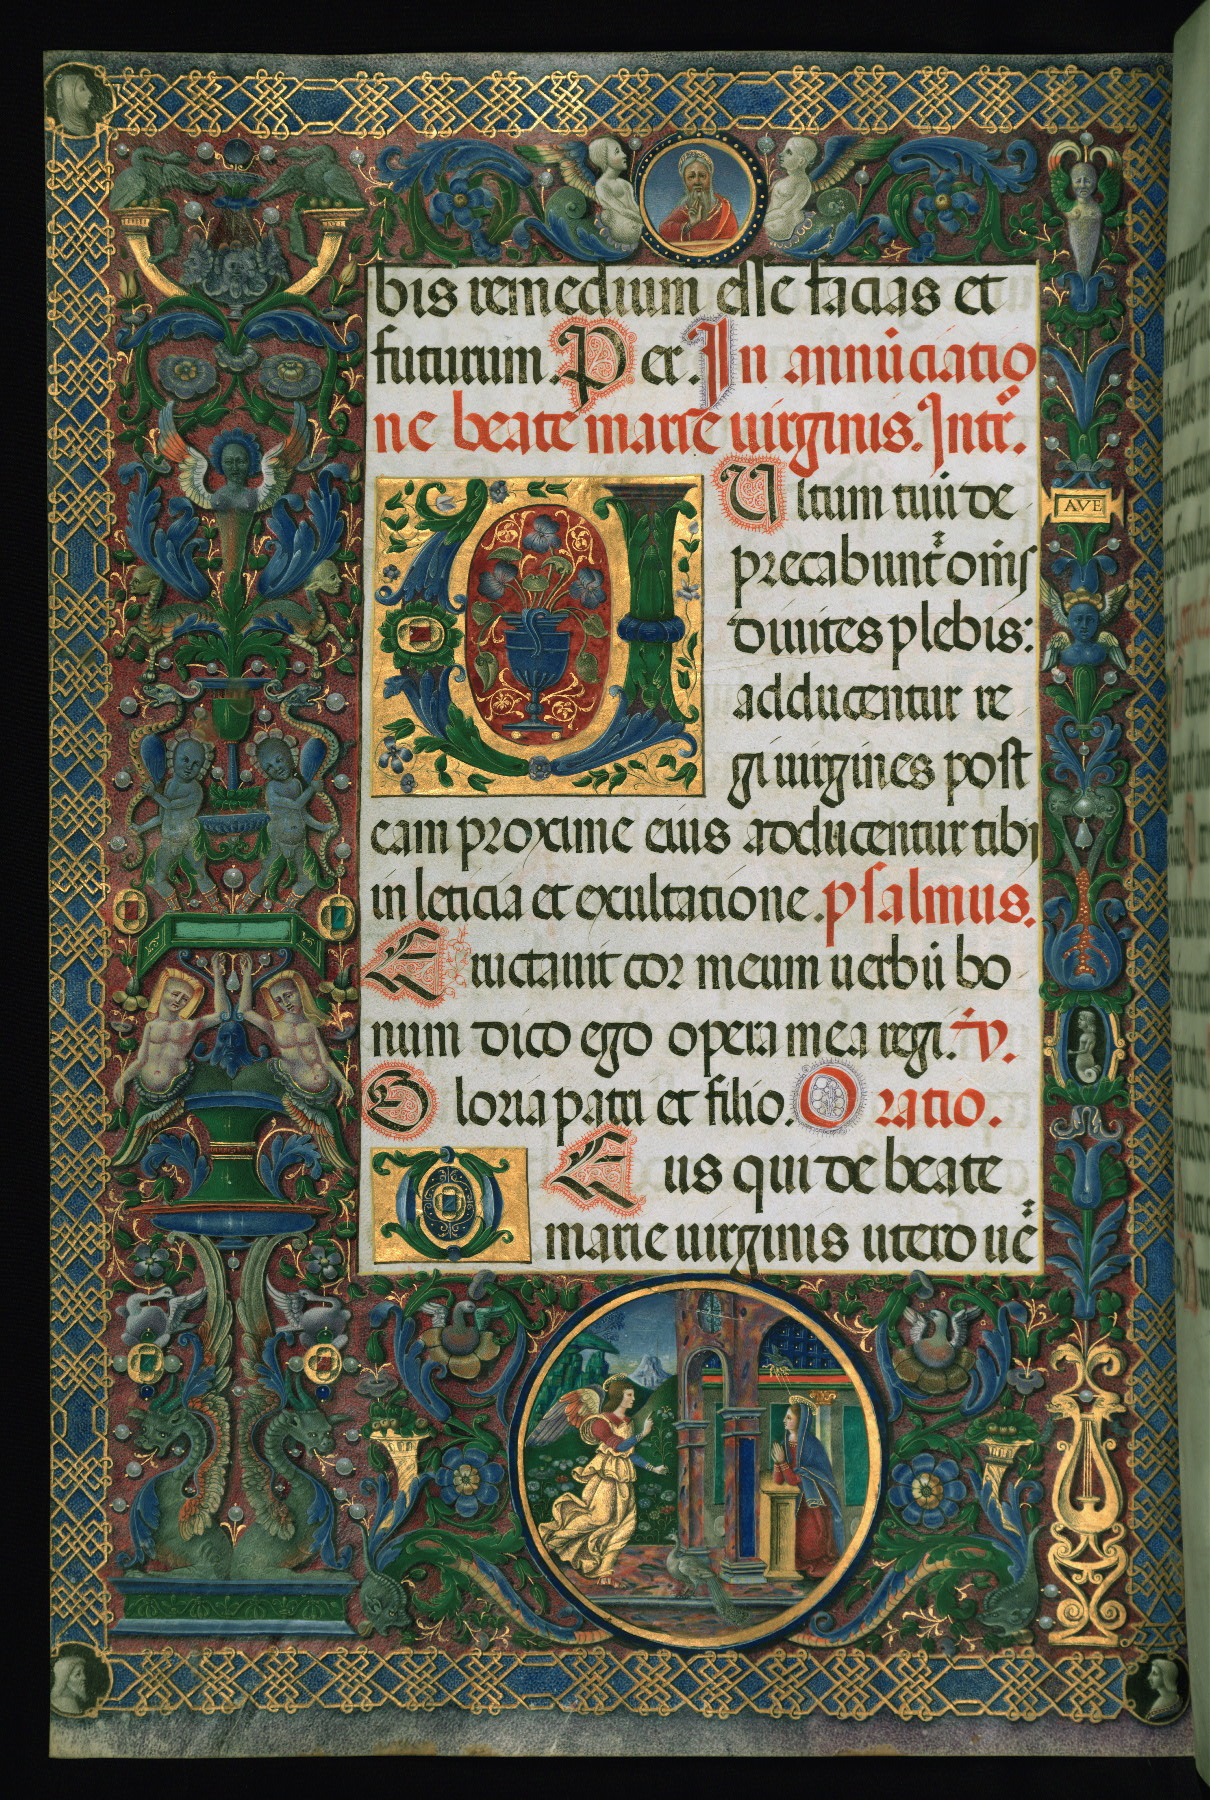 bis remedium esse facias et
futurum. Per. In annūciatio
ne beate marie uirginis. Intr̄.
Ultum tuū de
precabunt᷑ om̄s
diuites plebis:
adducentur re
gi uirgines post
eam proxime eius adducentur tibi
in leticia et exultatione. psalmus.
Eructauit cor meum uerbū bo
num dico ego opera mea regi. v̄.
Gloria patri et filio. Oratio.
DEus qui de beate
marie uirginis utero uē
AVE